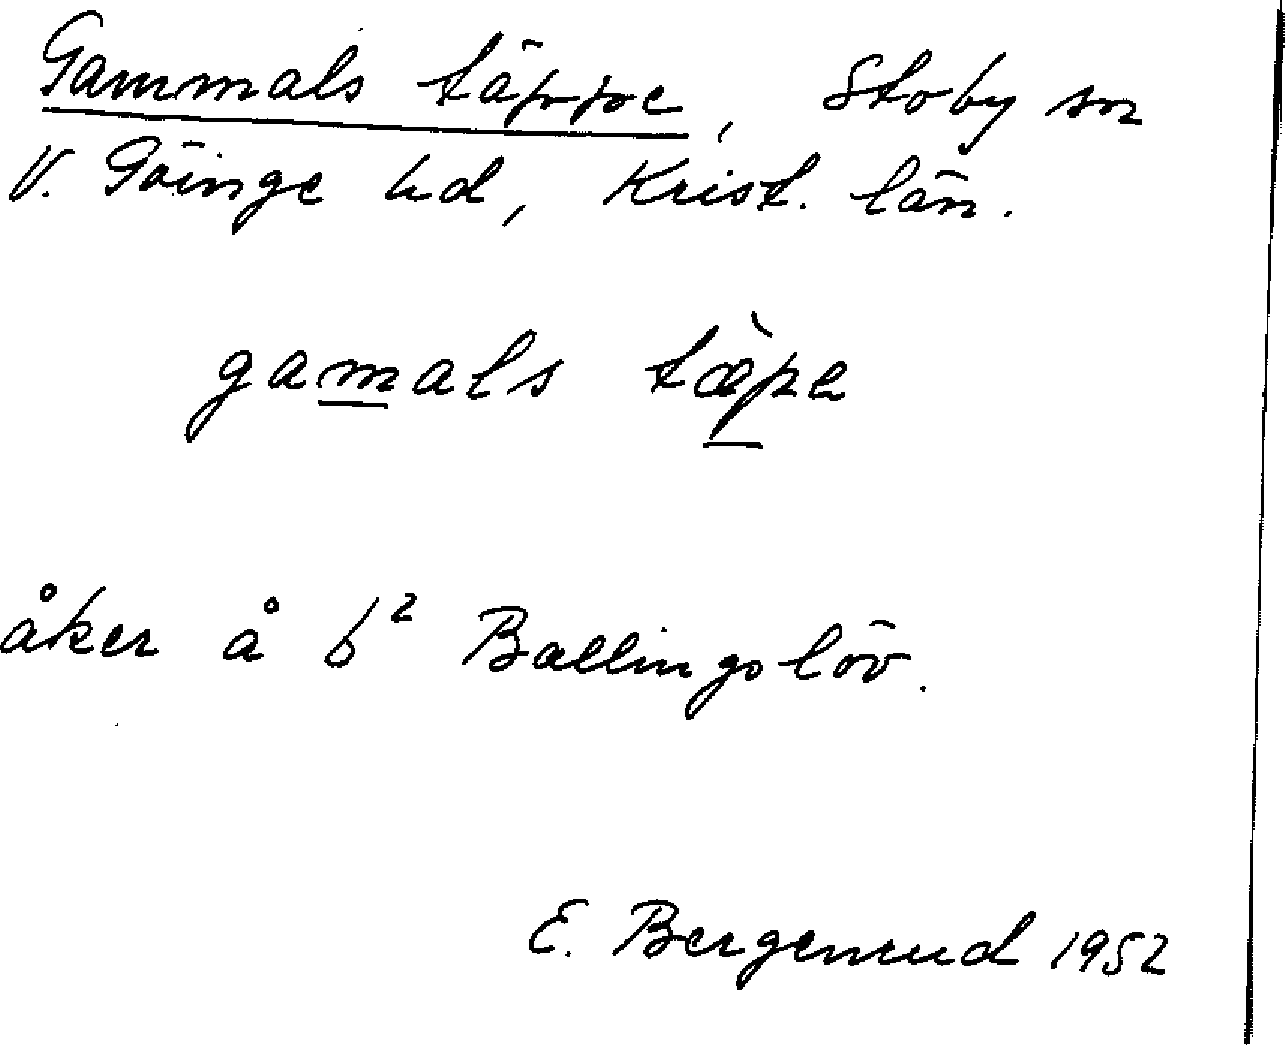 Gammals täppe, Stoby sn
V. Göinge hd, Krist. län.
gamals tæ̀pe
åker å b² Ballingslöv.
E. Bergenrud 1952